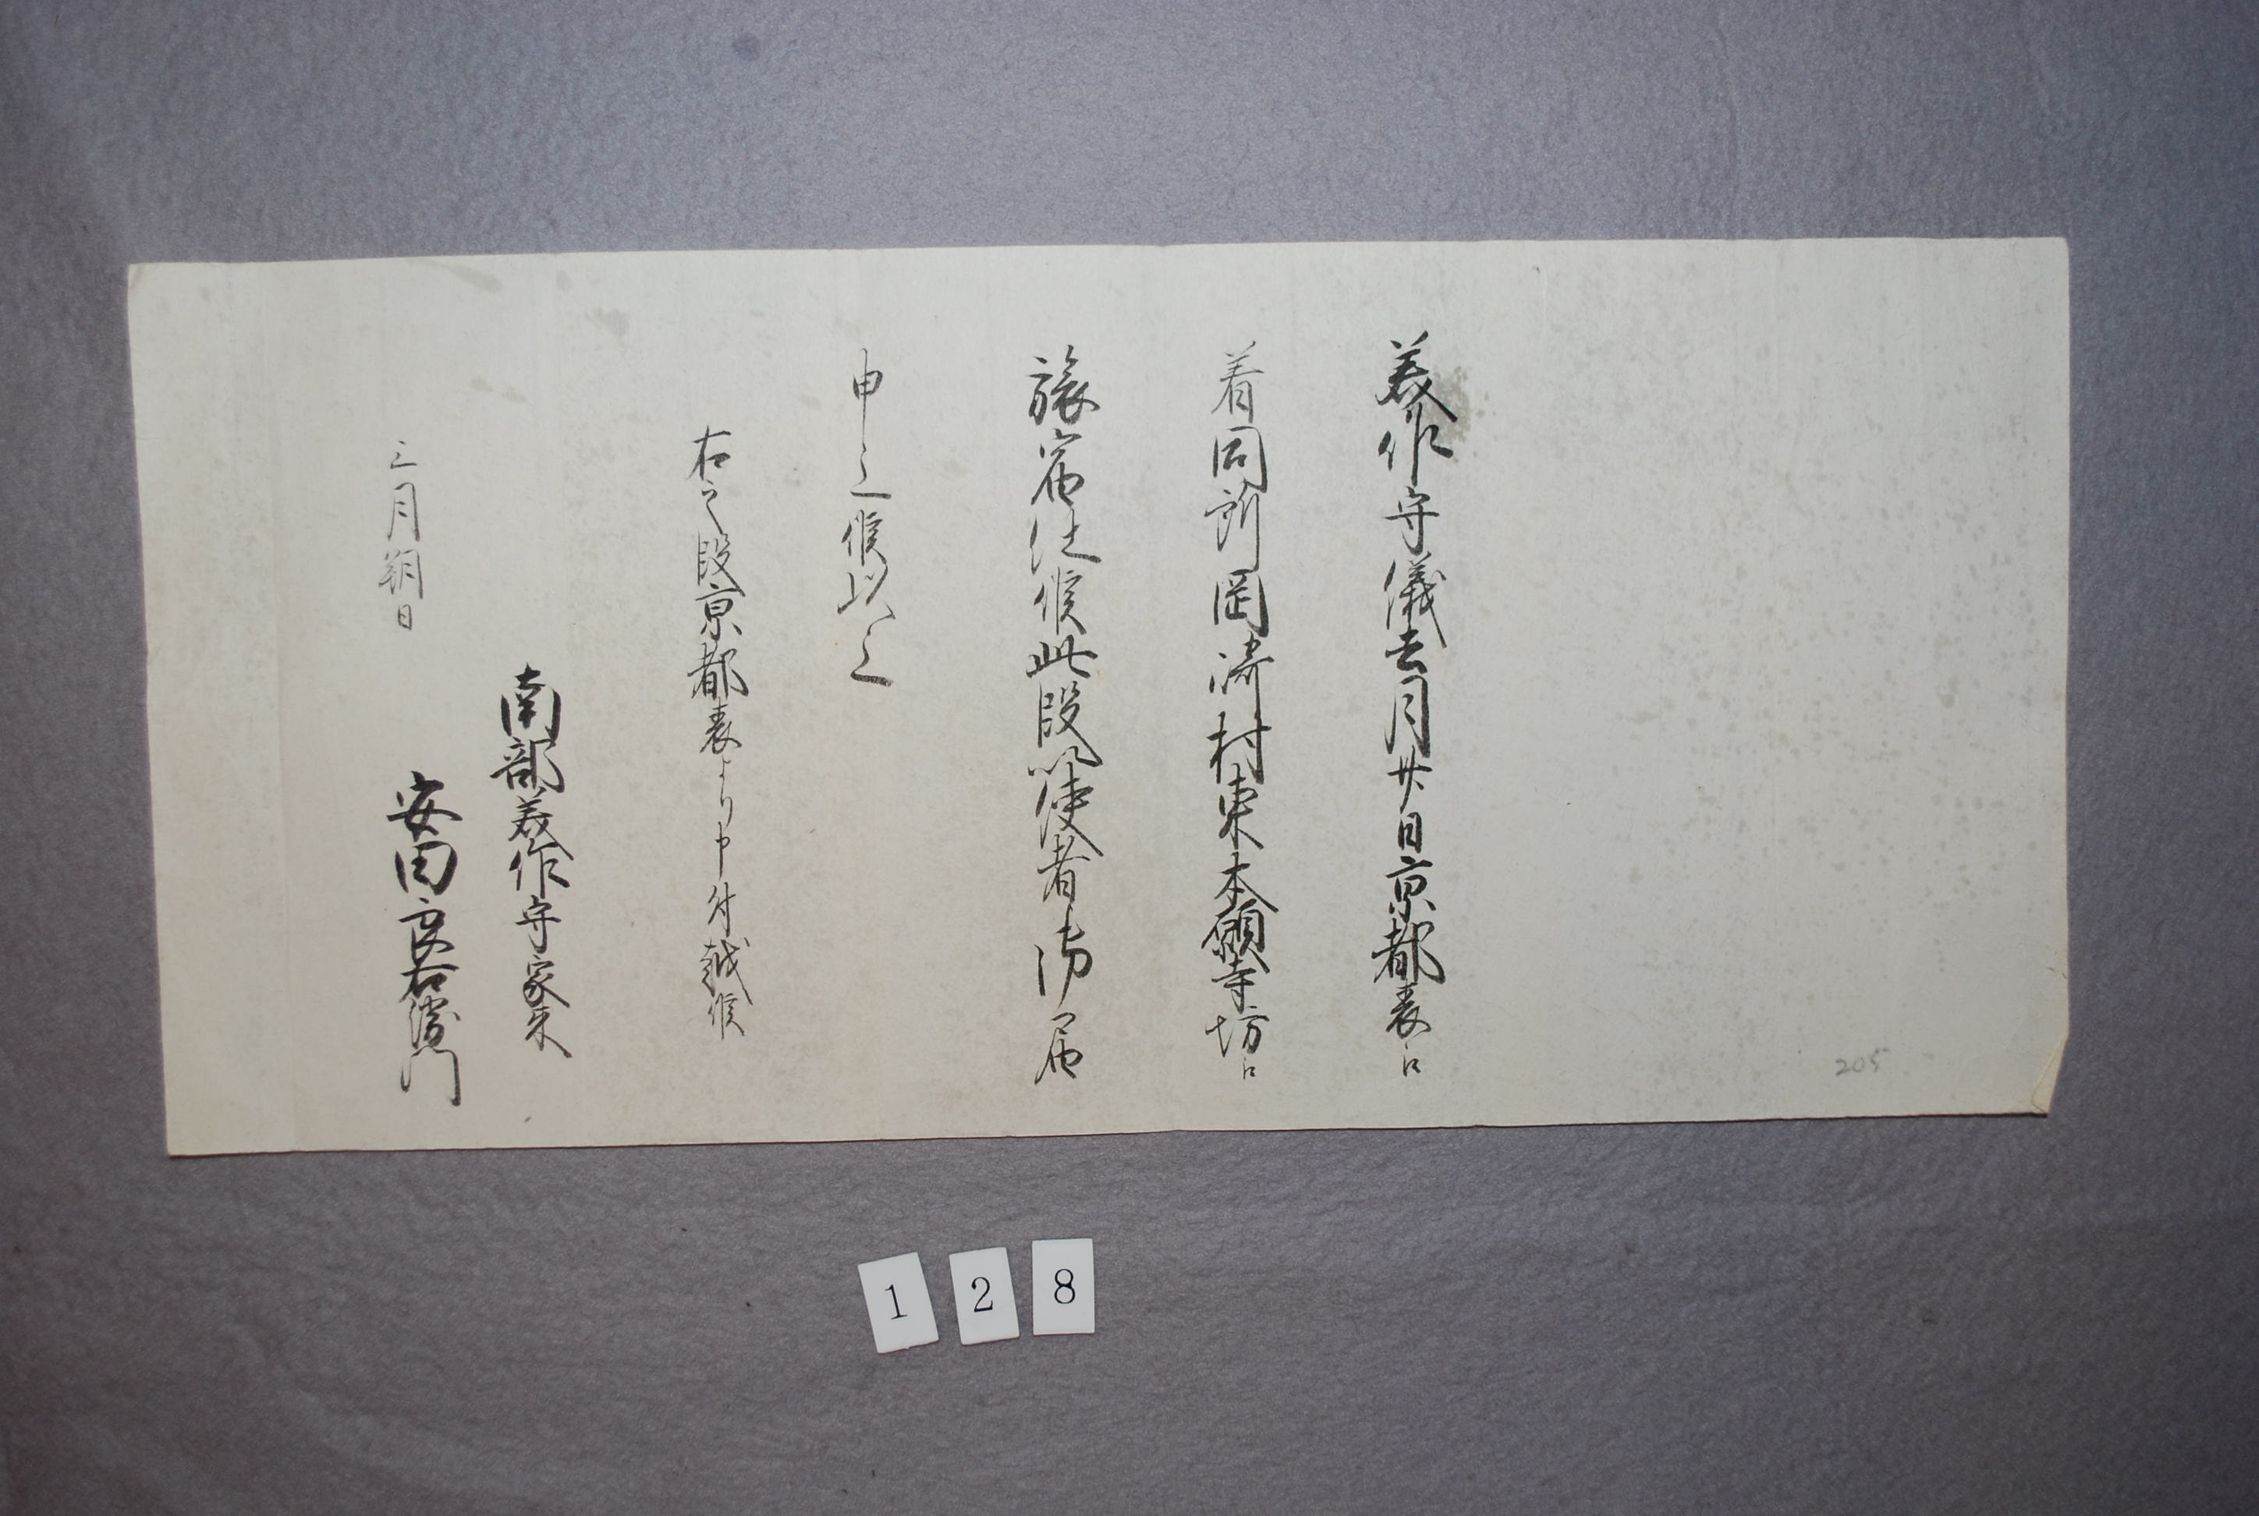 美作守儀去月廿日京都表江
着同所岡崎村東本願寺坊江
旅宿仕候此段以使者御届
申上候以上
右之段京都表より申付越候
南部美作守家来
三月朔日
安田良右衛門
205
1 2 8